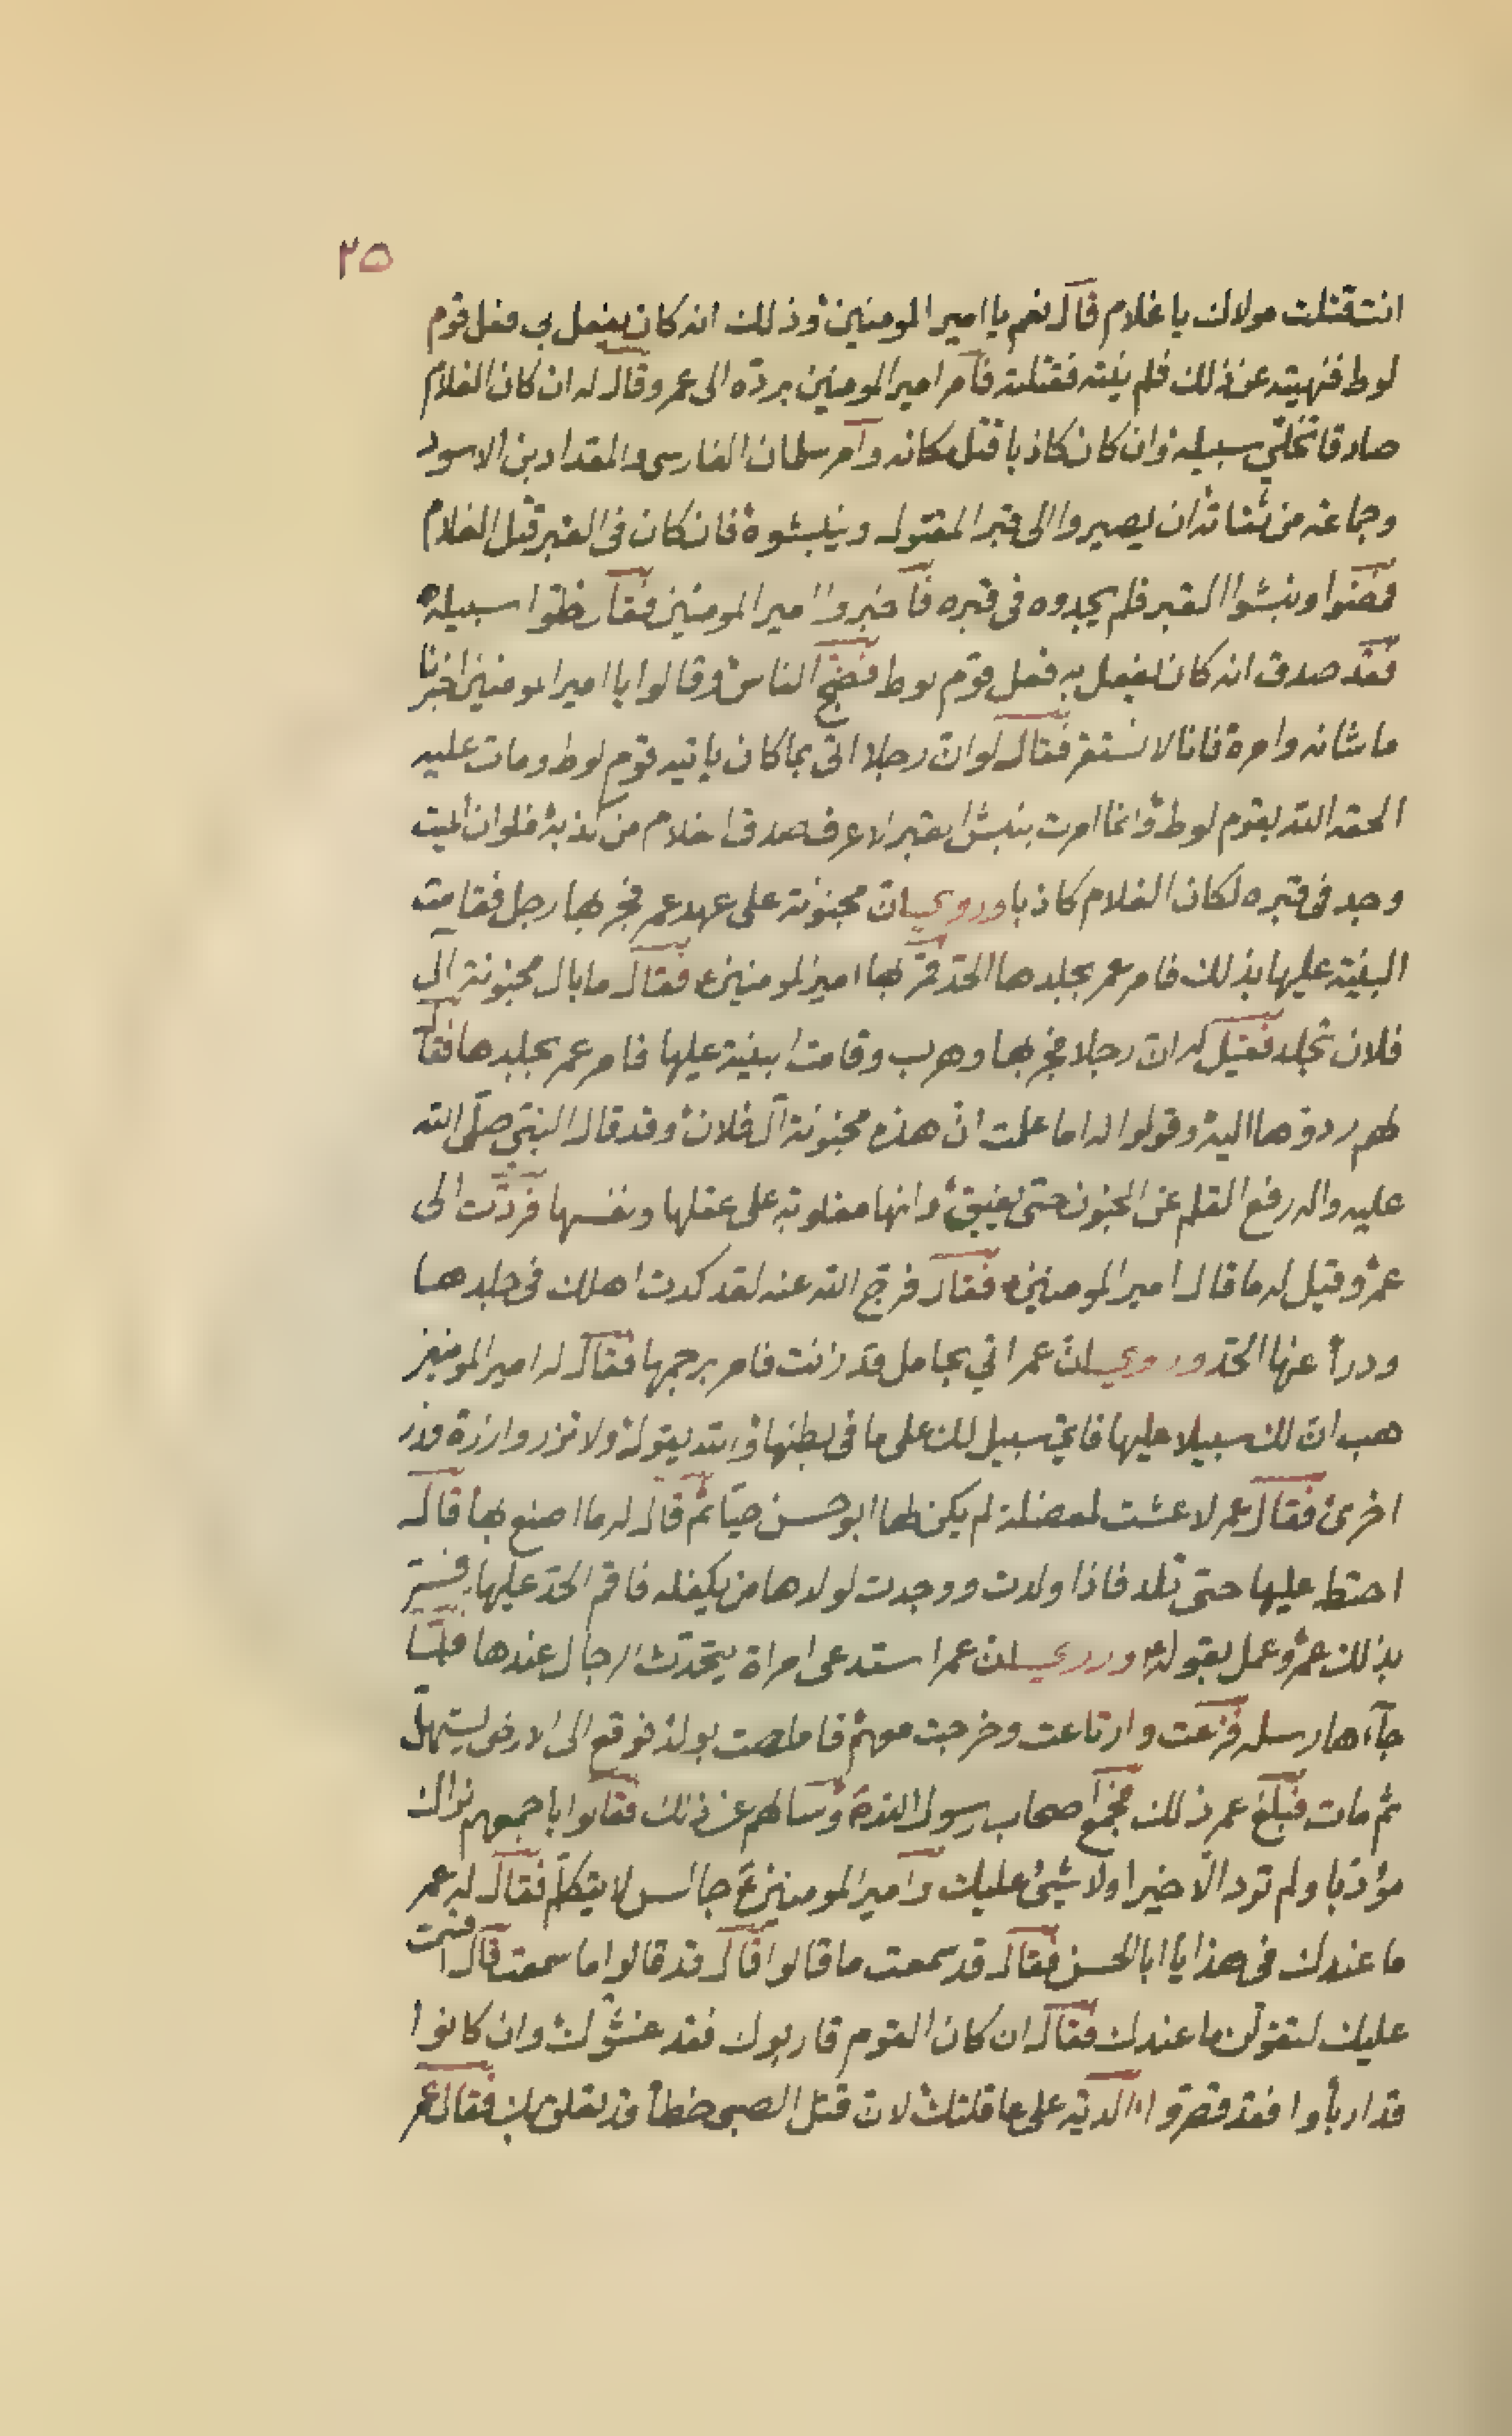 ٢٥
انت قتلت مولاك يا غلام قال نعم يا امير المومنين وذلك انه كان يفعل بي فعل قوم
لوط فنهيته عن ذلك فلم ينته فقتلته فامر امير المومنين برده الى عمر وقال له ان كان الغلام
صادقا تخلّي سبيله وان كان كاذبا قتل مكانه وامر سلمان الفارسى والمقداد بن الاسود
وجماعة من ثقاته ان يصيروا الى قبر المقتول وينبشوه فان كان فى القبر قتل الغلام
فمضوا ونبشوا القبر فلم يجدوه فى قبره فاخبروا امير المومنين فقال خلّوا سبيله
فقد صدق انه كان يفعل به فعل قوم لوط فضجّ الناس وقالوا يا امير المومنين اخبرنا
ما شانه وامره فانا لا نستقر فقال لو انّ رجلا اتى بما كان ياتيه قوم لوط ومات عليه
الحقه الله بقوم لوط وانما امرت بنبش القبر لاعرف صدق الغلام من كذبه فلو ان الميت
وجد فى قبره لكان الغلام كاذبا وروى انّ مجنونة على عهد عمر فجر بها رجل فقامت
البينة عليها بذلك فامر عمر بجلدها الحدّ فمرّ بها امير المومنين ع فقال ما بال مجنونة آل
فلان تجلد فقيل له انّ رجلا فجر بها وهرب وقامت البينة عليها فامر عمر بجلدها فقال
لهم ردوها اليه وقولوا له اما علمت انّ هذه مجنونة آل فلان وقد قال النبيّ صلّى الله
عليه واله رفع القلم عن المجنون حتى يفيق وانها مغلوبة على عقلها ونفسها فردّت الى
عمر وقيل له ما قال امير المومنين فقال فرج الله عنه لقد كدت اهلك فى جلدها
ودرأ عنها الحدّ وروى انّ عمر اتي بحامل قد زنت فامر برجمها فقال له امير المومنين
هب انّ لك سبيلا عليها فايّ سبيل لك على ما فى بطنها والله يقول ولا تزر وازرة وزر
اخرى فقال عمر لا عشت لمعضلة لم يكن لها ابو حسن حيّا ثم قال له ما اصنع بها قال
احتط عليها حتى تلد فاذا ولدت ووجدت لولدها من يكفله فاقم الحدّ عليها فسر
بذلك عمر وعمل بقوله وروى انّ عمر استدعى امراة يتحدّث الرجال عندها فلمّا
جآءها رسله فزعت وارتاعت وخرجت معهم فاملصت بولد فوقع الى الارض يستهلّ
ثم مات فبلغ عمر ذلك فجمع اصحاب رسول الله وسالهم عن ذلك فقالوا باجمعهم نراك
مؤدّبا ولم ترد الّا خيرا ولا شيئ عليك وامير المومنين ع جالس لا يتكلّم فقال له عمر
ما عندك فى هذا يا ابا الحسن فقال قد سمعت ما قالوا قال قد قالوا ما سمعت قال اقسمت
عليك لتقولن ما عندك فقال ان كان القوم قاربوك فقد غشّوك وان كانوا
قد ارتأوا فقد قصروا الدية على عاقلتك لان قتل الصبي خطأ قد تعلق بك فقال عمر